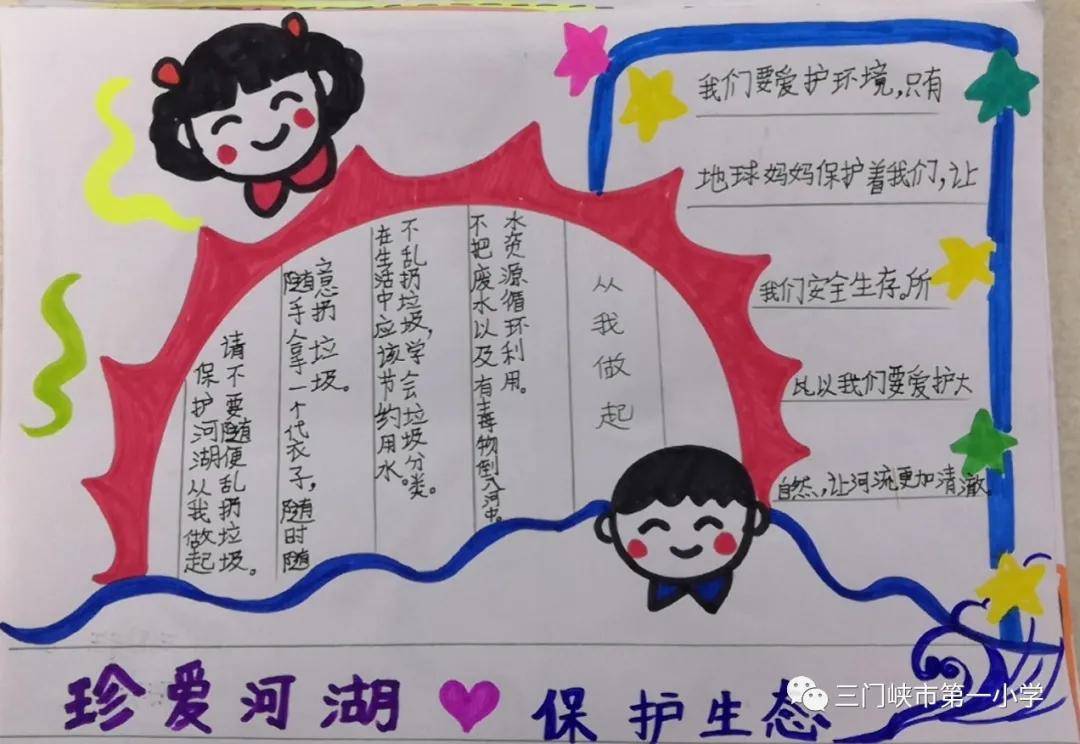 我们要爱护环境,只有
地球妈妈保护着我们,让
我们安全生存。所
比以我们要爱护大
自然、,让河流更加清澈。
从我做起
水资源循环利用。
不把废水以及有毒物倒入河中。
不乱扔垃圾,学会垃圾分类。
在生活中应该节约用水。
意扔垃圾。
随手拿一个代衣子,随时随
请不要随便乱扔垃圾。
保护河湖从我做起
珍爱河湖 保护生态
三门峡市第一小学